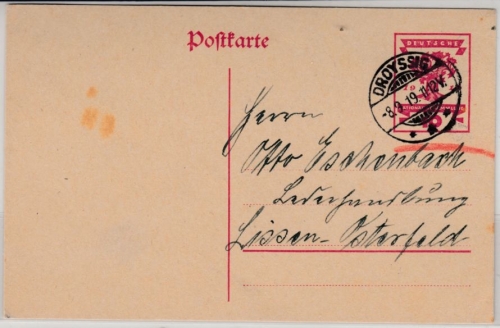 Postkarte
DEUTSCHE
DROYSSIG
-8.9.19.11-12V.
Herrn
Otto Eschenbach
Lederhandlung
Lissen-Osterfeld